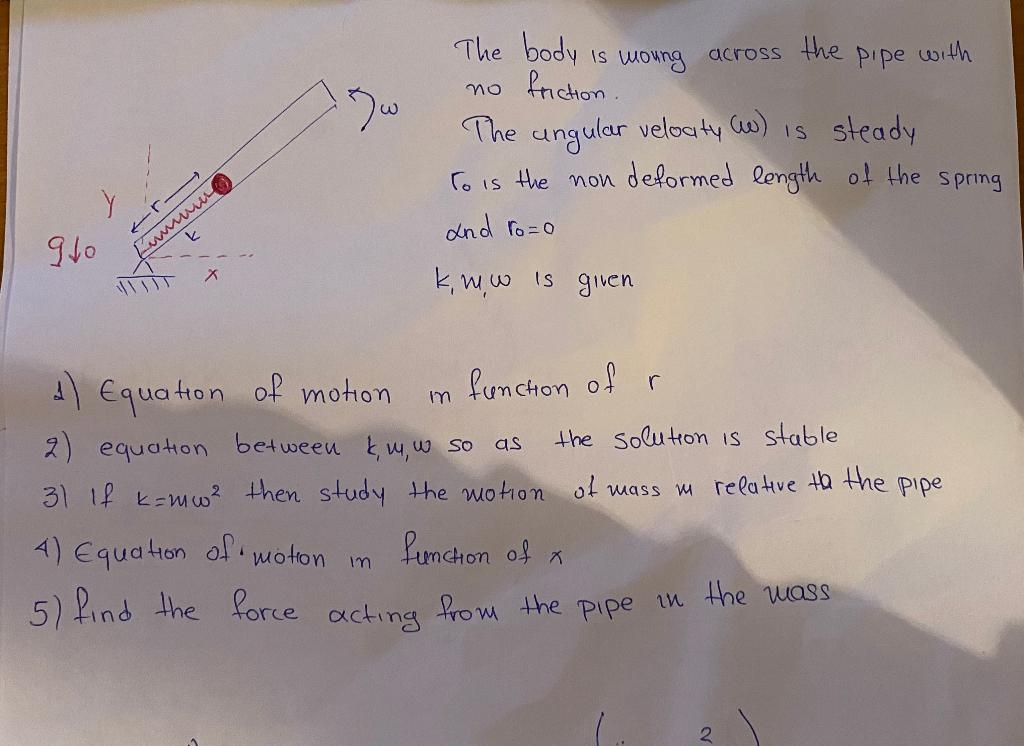 The body is moving across the pipe with
no friction.
The angular velocity (ω) is steady
r₀ is the non deformed length of the spring
and r₀=0
k, m, ω is given
ω
r
y
k
g↓
x
1) Equation of motion in function of r
2) equation between k, m, ω so as the solution is stable
3) If k=mω² then study the motion of mass m relative to the pipe
4) Equation of motion in function of x
5) find the force acting from the pipe in the mass
( 2 )